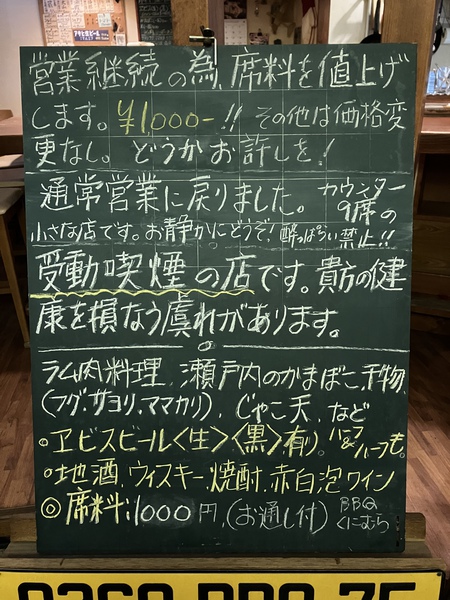 営業継続の為、席料を値上げ
します。¥1,000-!! その他は価格変
更なし。どうかお許しを!
通常営業に戻りました。カウンター
9席の
小さな店です。お静かにどうぞ!酔っぱらい禁止!!
受動喫煙の店です。貴方の健
康を損なう虞れがあります。
ラム肉料理、瀬戸内のかまぼこ、干物、
(フグ、サヨリ、ママカリ)、じゃこ天、など
・ヱビスビール<生><黒>有り。ハーフ&ハーフも。
・地酒、ウィスキー、焼酎、赤白泡ワイン
◎席料:1000円、(お通し付)
BBQ
くにむら